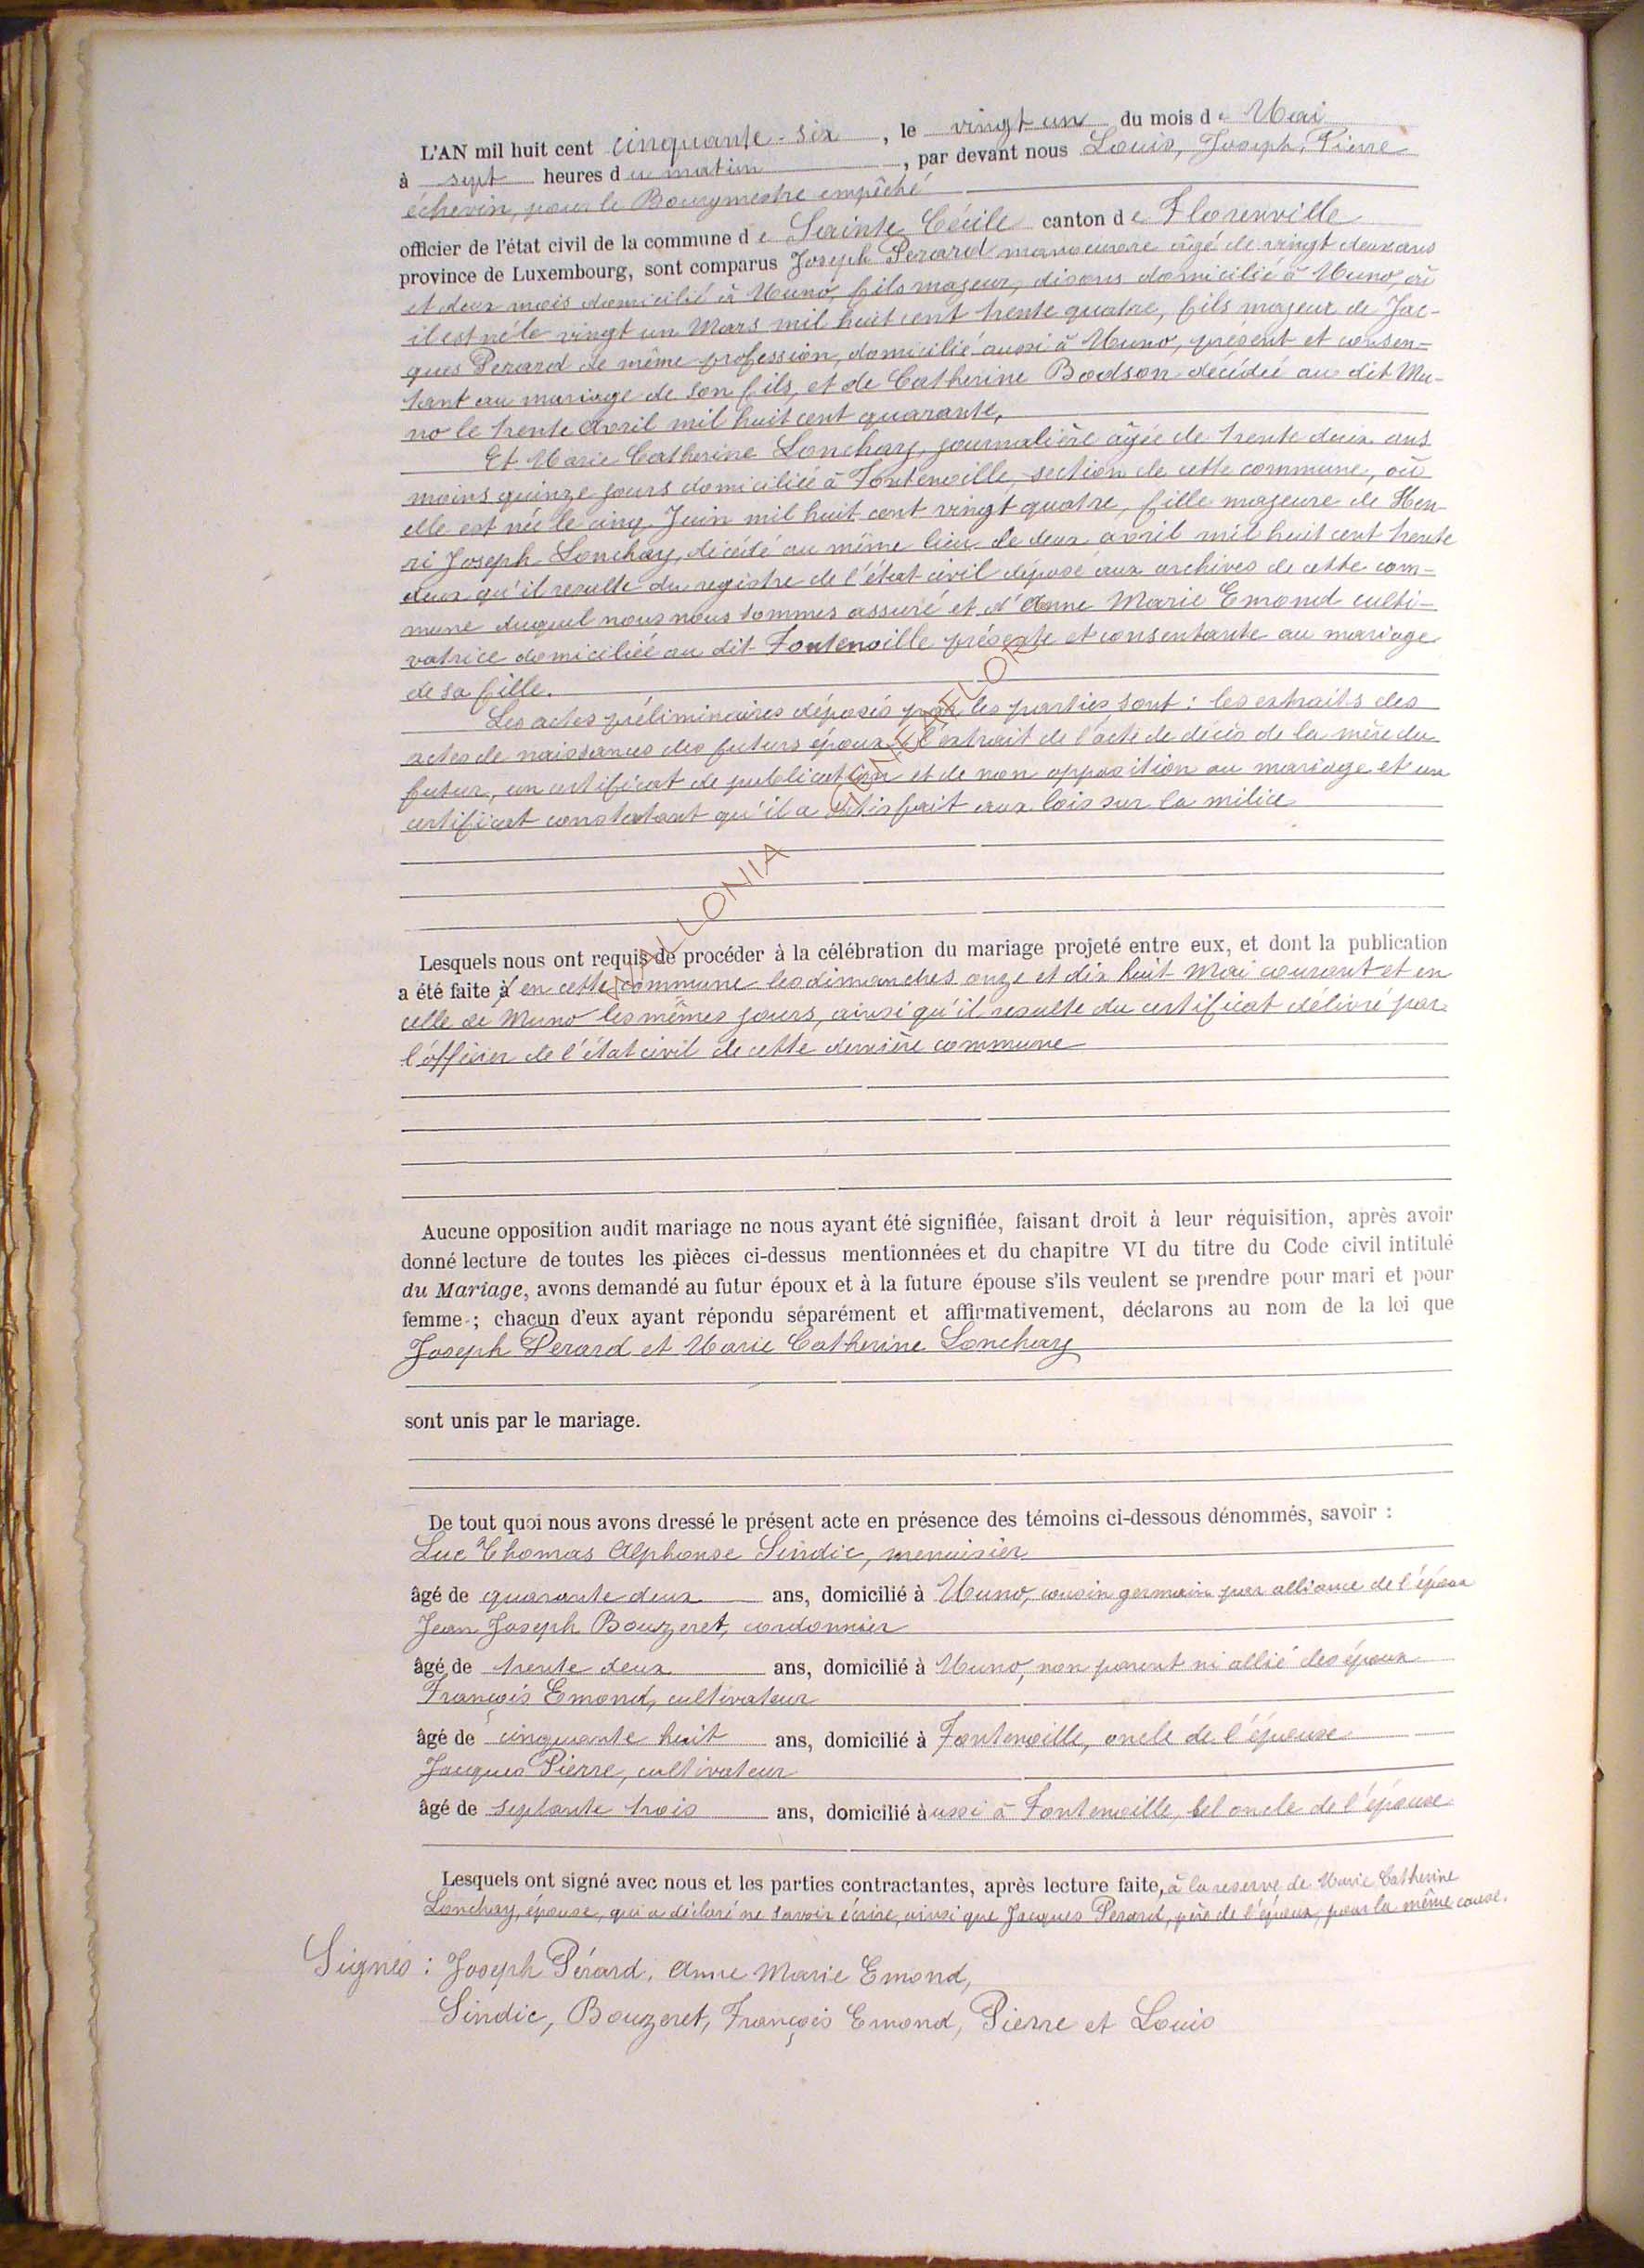 L'AN mil huit cent cinquante-six, le vingt un du mois de Mai
à sept heures du matin, par devant nous Louis, Joseph, Pierre
échevin, pour le Bourgmestre empêché
officier de l'état civil de la commune de Sainte Cécile canton de Florenville
province de Luxembourg, sont comparus Joseph Perard manoeuvre âgé de vingt deux ans
et deux mois domicilié à Muno, fils majeur, disons domicilié à Muno, où
il est né le vingt un Mars mil huit cent trente quatre, fils majeur de Jac-
ques Perard de même profession, domicilié aussi à Muno, présent et consen-
tant au mariage de son fils, et de Catherine Bodson décédée au dit Mu-
no le trente Avril mil huit cent quarante,
Et Marie Catherine Lonchay, journalière âgée de trente deux ans
moins quinze jours domiciliée à Fontenoille, section de cette commune, où
elle est née le cinq Juin mil huit cent vingt quatre, fille majeure de Hen-
ri Joseph Lonchay, décédé au même lieu le deux avril mil huit cent trente
deux qu'il resulte du registre de l'état civil déposé aux archives de cette com-
mune duquel nous nous sommes assuré et d'Anne Marie Emond culti-
vatrice domiciliée au dit Fontenoille présente et consentante au mariage
de sa fille.
Les actes préliminaires déposés par les parties sont : les extraits des
actes de naissances des futurs époux, l'extrait de l'acte de décès de la mère du
futur, un certificat de publication et de non opposition au mariage et un
certificat constatant qu'il a satisfait aux lois sur la milice
WALLONIA GENEAFLOR
Lesquels nous ont requis de procéder à la célébration du mariage projeté entre eux, et dont la publication
a été faite à en cette commune les dimanches onze et dix huit Mai courant et en
celle de Muno les mêmes jours, ainsi qu'il resulte du certificat délivré par
l'officier de l'état civil de cette dernière commune
Aucune opposition audit mariage ne nous ayant été signifiée, faisant droit à leur réquisition, après avoir
donné lecture de toutes les pièces ci-dessus mentionnées et du chapitre VI du titre du Code civil intitulé
du Mariage, avons demandé au futur époux et à la future épouse s'ils veulent se prendre pour mari et pour
femme ; chacun d'eux ayant répondu séparément et affirmativement, déclarons au nom de la loi que
Joseph Perard et Marie Catherine Lonchay
sont unis par le mariage.
De tout quoi nous avons dressé le présent acte en présence des témoins ci-dessous dénommés, savoir :
Luc Thomas Alphonse Sindic, menuisier
âgé de quarante deux ans, domicilié à Muno, cousin germain par alliance de l'époux
Jean Joseph Bouzeret, cordonnier
âgé de trente deux ans, domicilié à Muno, non parent ni allié des époux
François Emond, cultivateur
âgé de cinquante huit ans, domicilié à Fontenoille, oncle de l'épouse
Jacques Pierre, cultivateur
âgé de septante trois ans, domicilié aussi à Fontenoille, bel oncle de l'épouse
Lesquels ont signé avec nous et les parties contractantes, après lecture faite, à la reserve de Marie Catherine
Lonchay, épouse, qui a déclaré ne savoir écrire, ainsi que Jacques Perard, père de l'époux, pour la même cause.
Signés : Joseph Pérard, Anne Marie Emond,
Sindic, Bouzeret, François Emond, Pierre et Louis